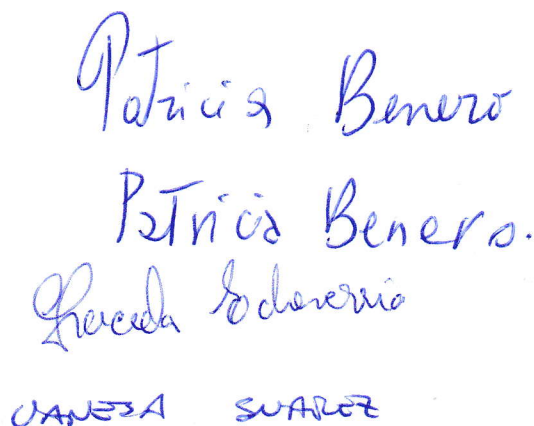 Patricia Benero
Patricia Benero.
Graciela Echeverria
VANESA SUAREZ